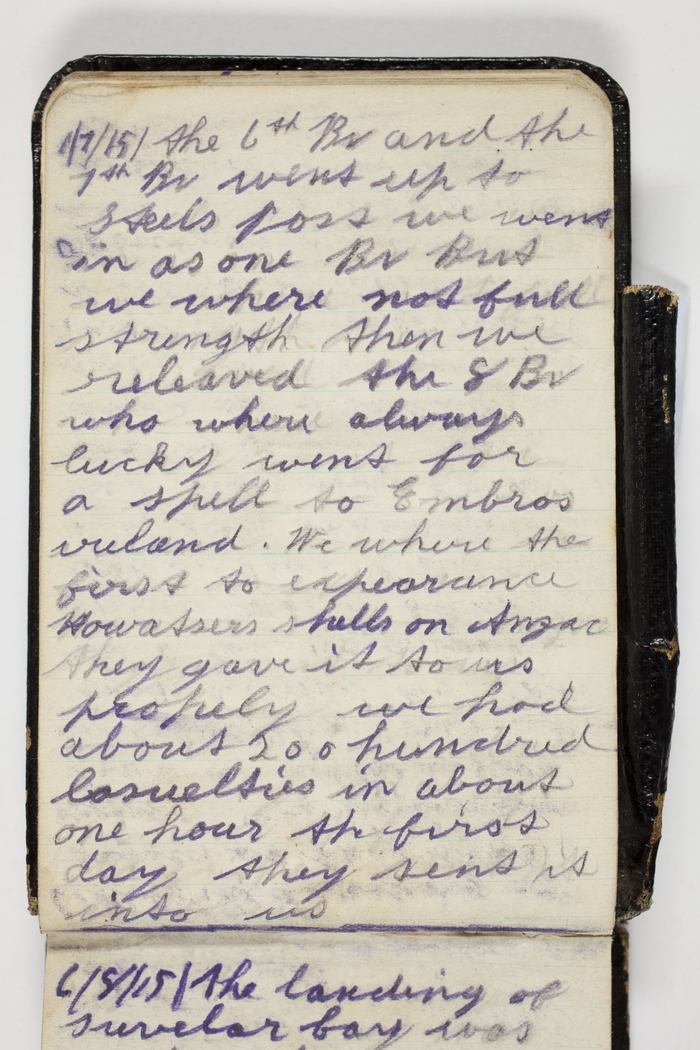 1/7/15/ the 6th Br and the
7th Br went up to
Steels Post we went
in as one Br But
we where not full
strength then we
releaved the 8 Br
who where always
lucky went for
a spell to Embros
ireland. We where the
first to expearance
Howatsers shells on Anzac
they gave it to us
propely we had
about 200 hundred
Casuelties in about
one hour th first
day they sent it
into us
6/8/15/ the landing of
suvelar bay was